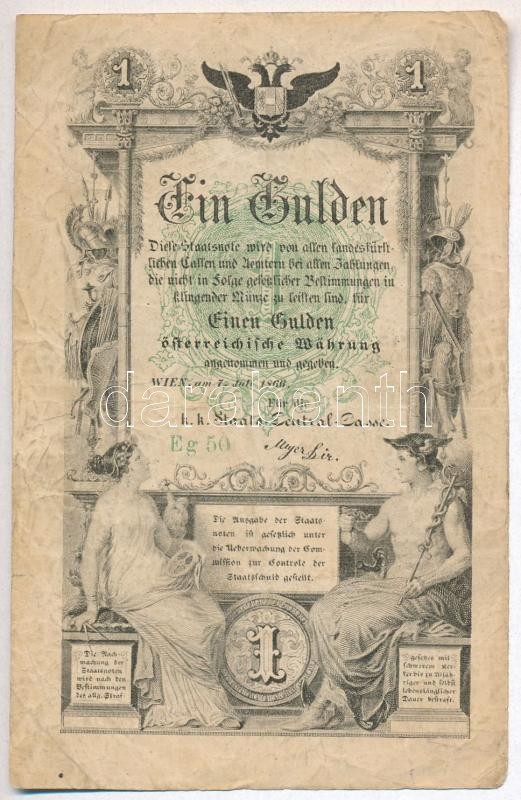 1 1
Ein Gulden
Diese Staatsnote wird von allen landesfürst-
lichen Cassen und Aemtern bei allen Zahlungen,
die nicht in Folge gesetzlicher Bestimmungen in
klingender Münze zu leisten sind, für
Einen Gulden
österreichische Währung
angenommen und gegeben.
WIEN, am 7. Juli 1866
Für die
k. k. Staats-Central-Casse.
Eg 50
Dir.
darabanth
Die Ausgabe der Staats-
noten ist gesetzlich unter
die Ueberwachung der Com-
mission zur Controle der
Staatsschuld gestellt.
1
Die Nach-
machung der
Staatsnoten
wird nach den
Bestimmungen
des allg. Straf-
gesetzes mit
schwerem Ker-
ker bis zu 20jäh-
riger und selbst
lebenslänglicher
Dauer bestraft.